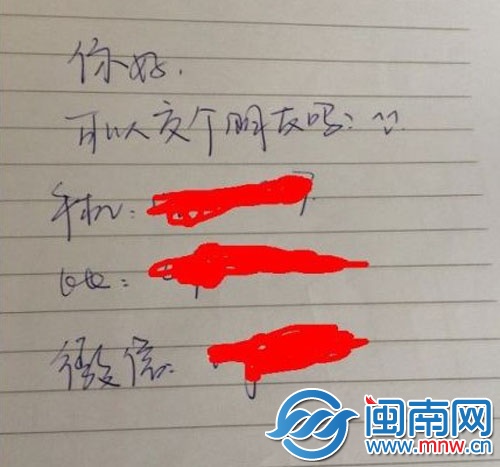 你好.
可以交个朋友吗: ^^
手机: 7
QQ:
微信:
闽南网
www.mnw.cn